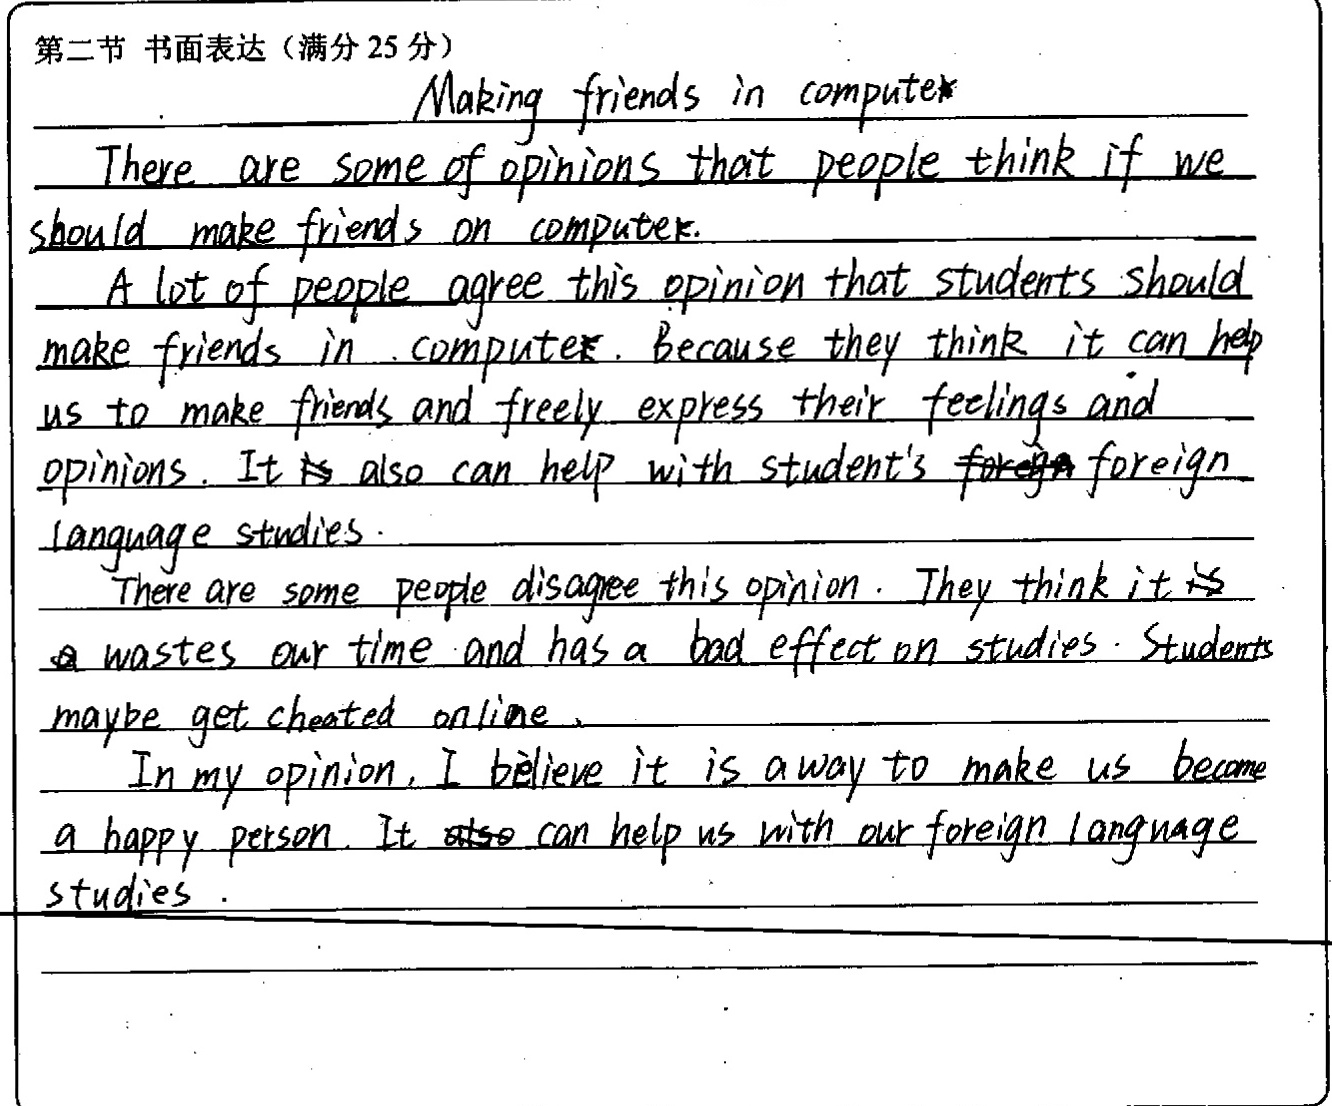 第二节 书面表达（满分 25 分）
Making friends in computer
There are some of opinions that people think if we
should make friends on computer.
A lot of people agree this opinion that students should
make friends in computer. Because they think it can help
us to make friends and freely express their feelings and
opinions. It is also can help with student's foreign foreign
language studies.
There are some people disagree this opinion. They think it is
a wastes our time and has a bad effect on studies. Students
maybe get cheated online.
In my opinion, I believe it is a way to make us become
a happy person. It also can help us with our foreign language
studies.